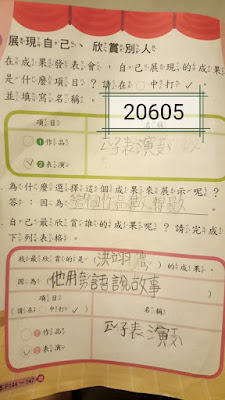 展現自己、欣賞別人
在成果發表會,自己展現的成果
是什麼項目?請在○中打✓,
並填寫名稱。
20605
項目
名稱
①作品
✓ ②表演
為什麼選擇這個成果來展示呢?
答:因為
自己最欣賞誰的成果呢?請完成
下列表格。
我最欣賞的是(洪翊)的成果。
因為(他用台語說故事)
項目
(請在○中打✓)
名稱:
①作品
✓ ②表演
表演